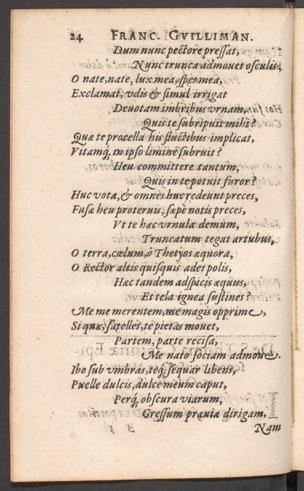 24 FRANC. GVILLIMAN.
Dum nunc pectore pressat,
Nunc trunca admouet osculis,
O nate, nate, lux mea, spes mea,
Exclamat, vdis & simul irrigat
Deuotam imbribus vrnam,
Quis te subripuit mihi?
Quæ te procella his fluctibus implicat,
Vitamq; in ipso limine subruit?
Heu committere tantum,
Quis in te potuit furor?
Huc vota, & omnes huc redeunt preces,
Fusæ heu proteruis, sæpè notis preces,
Vt te hæc vrnula demum,
Truncatum tegat artubus,
O terra, cælum, ô Thetyos æquora,
O Rector altis quisquis ades polis,
Hæc tandem adspicis æquus,
Et tela ignea sustines?
Me me merentem, me magis opprime,
Si quæ, satelles, te pietas mouet,
Partem, parte recisa,
Me nato sociam admoue.
Ibo sub vmbras, teq; sequar libens,
Puelle dulcis, dulce meum caput,
Perq; obscura viarum,
Gressum præuia dirigam,
Nam